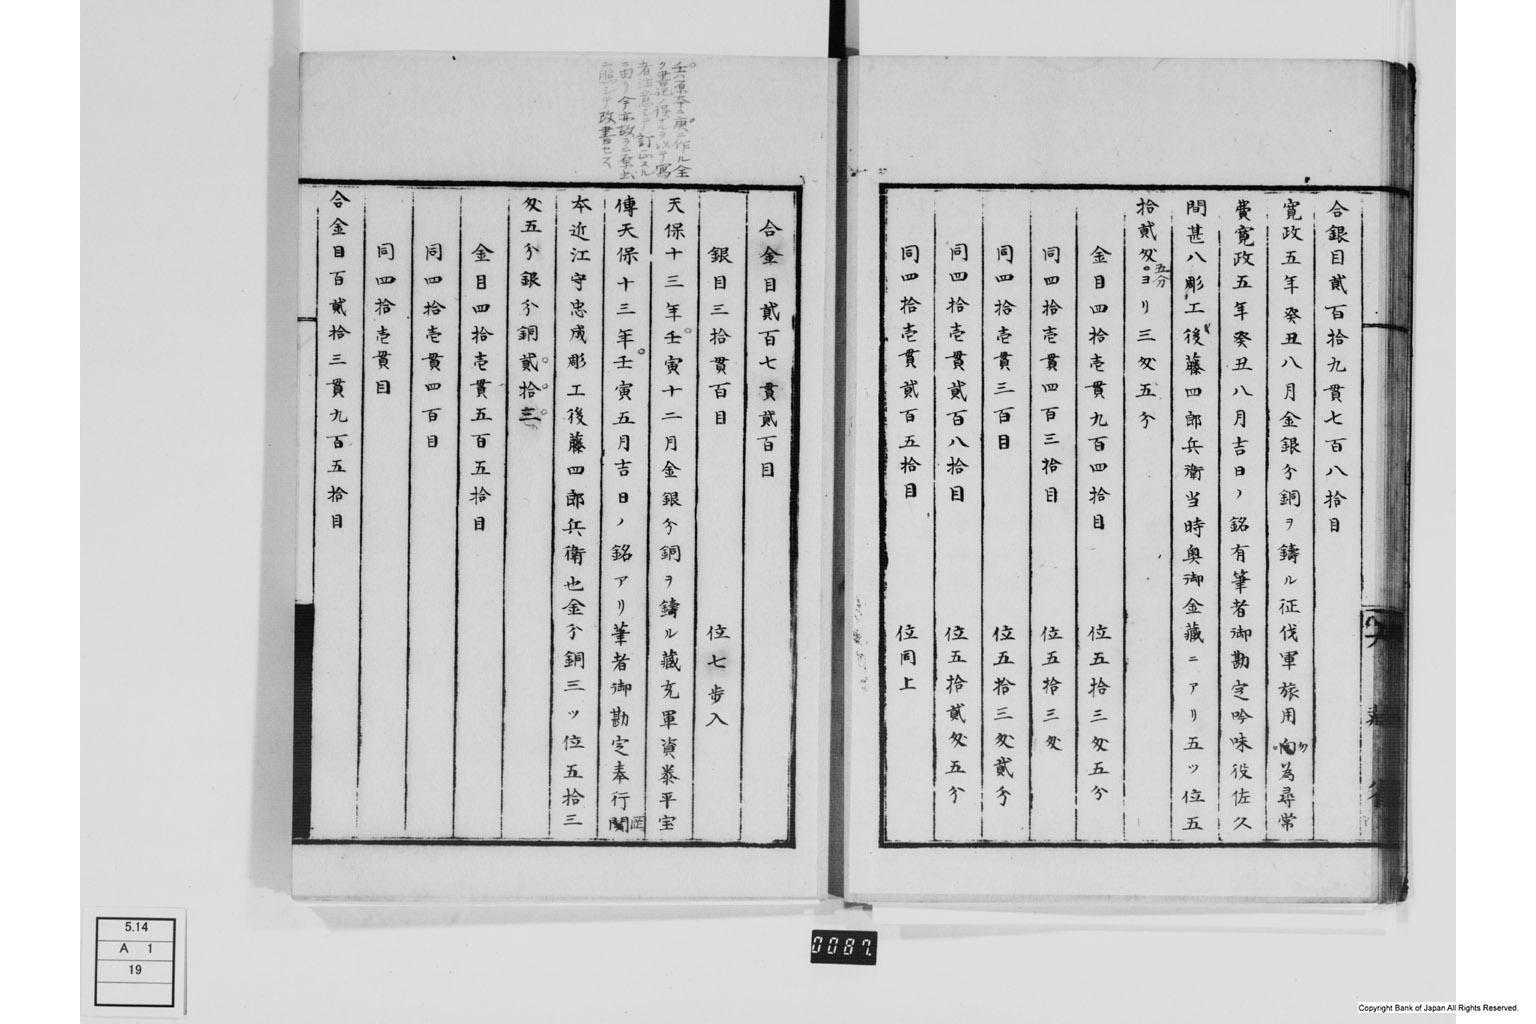 合銀目貳百拾九貫七百八拾目
寛政五年癸丑八月金銀分銅ヲ鋳ル征伐軍旅用向為尋常
費寛政五年癸丑八月吉日ノ銘有筆者御勘定吟味役佐久
間甚八彫工後藤四郎兵衛当時奥御金蔵ニアリ五ツ位五
拾貳匁五分ヨリ三匁五分
金目四拾壱貫九百四拾目 位五拾三匁五分
同四拾壱貫四百三拾目 位五拾三匁
同四拾壱貫三百目 位五拾三匁貳分
同四拾壱貫貳百八拾目 位五拾貳匁五分
同四拾壱貫貳百五拾目 位同上
合金目貳百七貫貳百目
銀目三拾貫百目 位七步入
天保十三年壬寅十二月金銀分銅ヲ鋳ル蔵充軍資泰平宝
傳天保十三年壬寅五月吉日ノ銘アリ筆者御勘定奉行岡
本近江守忠成彫工後藤四郎兵衛也金分銅三ツ位五拾三
匁五分銀分銅貳拾三
金目四拾壱貫五百五拾目
同四拾壱貫四百目
同四拾壱貫目
合金目百貳拾三貫九百五拾目
壬ハ原本ニ庚ニ作ル全
ク書記ノ誤ナルヲ以テ寫
者注意シテ訂正スル
ニ由リ今亦故ラニ原書
ニ照シテ改書セス
0087.
5.14
A 1
19
Copyright Bank of Japan All Rights Reserved.